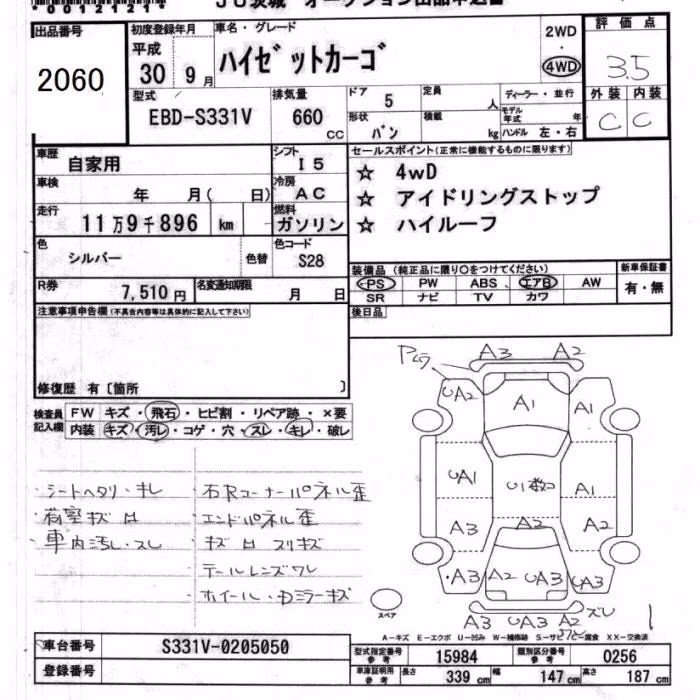 00012121
JU茨城 オークション出品申込書
出品番号
2060
初度登録年月
平成
30 9月
車名・グレード
ハイゼットカーゴ
2WD
・
4WD
評価点
3.5
外装 内装
C C
型式
EBD-S331V
排気量
660 CC
ドア 5
形状 バン
定員 人
積載 kg
ディーラー・並行
モデル年式 年
ハンドル 左・右
車歴 自家用
シフト I5
車検 年 月( 日)
冷房 AC
走行 11万9千896 km
燃料 ガソリン
色 シルバー 色替
色コード S28
R券 7,510円
名変通知期限 月 日
セールスポイント(正常に機能するものに限ります)
☆ 4WD
☆ アイドリングストップ
☆ ハイルーフ
装備品 (純正品に限り○をつけてください)
PS PW ABS エアB AW
SR ナビ TV カワ
新車保証書
有・無
後日品
注意事項申告欄(不具合内容等は具体的に記入して下さい)
修復歴 有〔箇所 〕
検査員記入欄
FW キズ・飛石・ヒビ割・リペア跡・×要
内装 キズ・汚レ・コゲ・穴・スレ・キレ・破レ
・シートヘタリ・キレ
・荷室キズ凹
・車内汚レ・スレ
・右Rコーナーパネル歪
・エンドパネル歪
・キズ凹スリキズ
・テールレンズワレ
・ホイール・Dミラーキズ
Pムラ A3 A2
UA2 A1 A1
UA1 U1数コ A1
A3 A2 A2
・A3 A2 UA3 UA3
スペア
A3 UA3 A2 ズレ
ワレ
A-キズ E-エクボ U-凹み W-補修跡 S-サビ C-腐食 XX-交換済
車台番号 S331V-0205050
登録番号
型式指定番号 参考 15984
類別区分番号 参考 0256
車庫証明用 参考 長さ 339 cm 幅 147 cm 高さ 187 cm